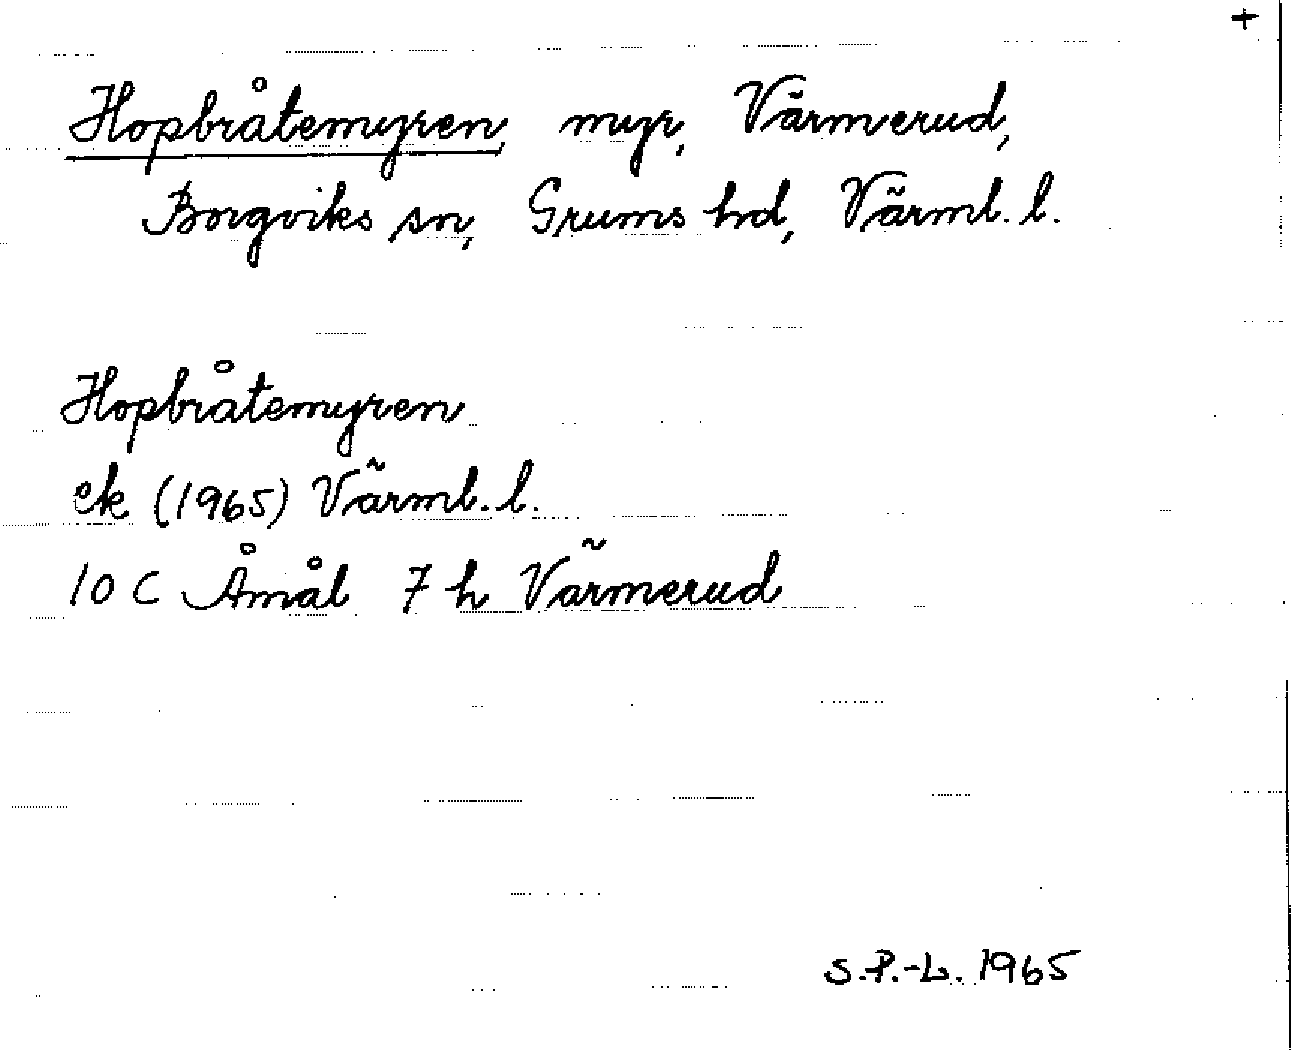 +
Hopbråtemyren, myr, Värmerud,
Borgviks sn, Grums hd, Värml. l.
Hopbråtemyren
ek (1965) Värml. l.
10 C Åmål 7 h Värmerud
S.P.-L. 1965